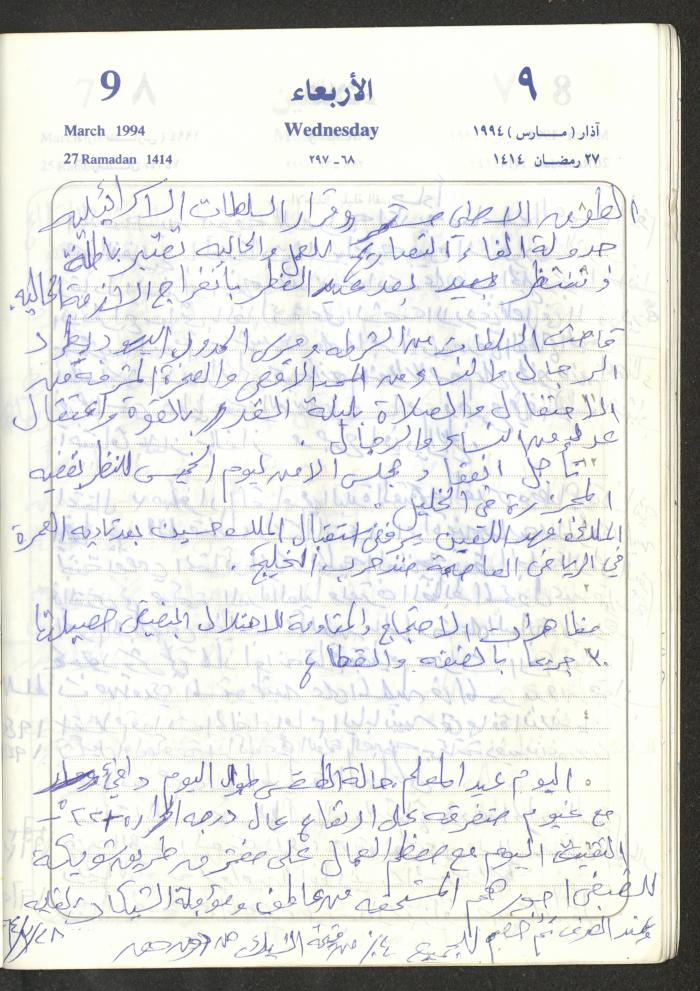 9 الأربعاء ٩
March 1994 Wednesday آذار ( مـــارس ) ١٩٩٤
27 Ramadan 1414 ٦٨-٢٩٧ ٢٧ رمضــان ١٤١٤
الطوق الامني مستمر وقرار السلطات الاسرائيليه
جدولة الغاء التصاريح للعمل والحاليه تعتبر باطلة
وننتظر بعد عيد الفطر بانفراج الازمة الحاليه.
قامت السلطات من الشرطه وحرس الحدود اليهود بطرد
الرجال والنساء من المسجد الأقصى والصخرة المشرفة من
الاحتفال والصلاة بليلة القدر بالقوة واعتقال
عدد من النساء والرجال .
تأجل انعقاد مجلس الامن ليوم الخميس للنظر بقضيه
المجزرة في الخليل .
الملك فهد يرفض استقبال الملك حسين بعد تاديه العمرة
في الرياض العاصمة منذ حرب الخليج .
مظاهرات الاحتجاج والمقاومة للاحتلال البغيض حصيلتها
٣٠ جريحا بالضفه والقطاع
اليوم عيد المعلم حالة الطقس طوال اليوم دافئ
مع غيوم متفرقه على ارتفاع عال درجه الحرارة
التقيت اليوم مع معظم العمال على مفترق طريق
للقبض اجورهم المستحقه من عاطف ومؤجلة الشيكات
وعند الصرف تم خصم للجميع ٤٪ من قيمة الشيك من